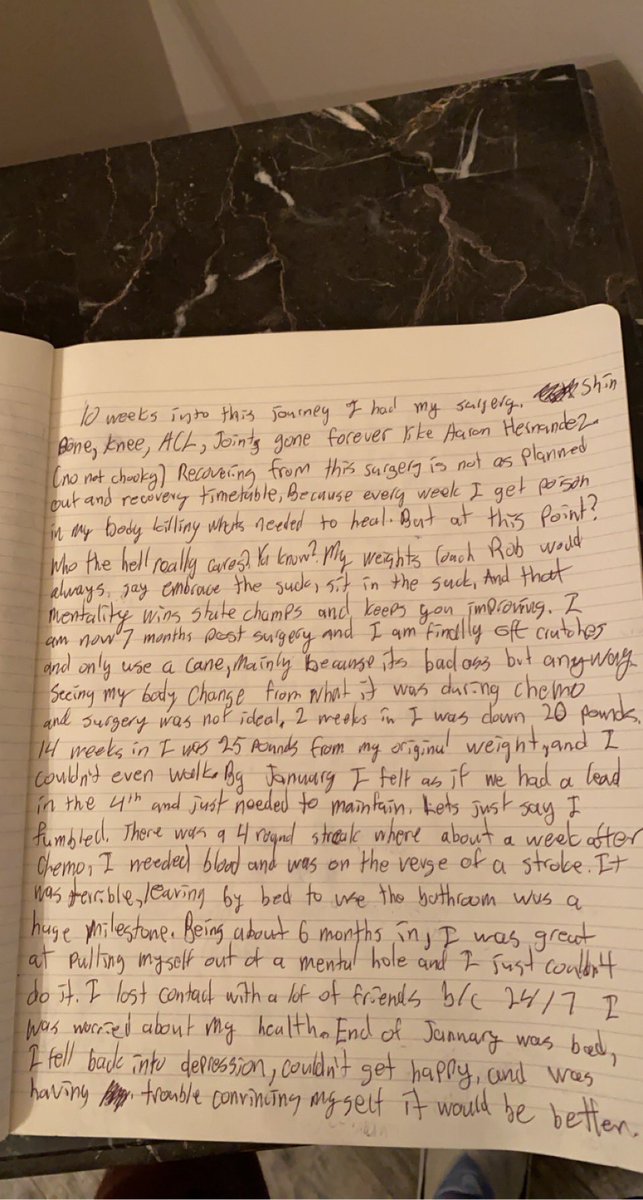 10 weeks into this journey I had my surgery. Shin
Bone, knee, ACL, Joints gone forever like Aaron Hernandez.
(no not chooky) Recovering from this surgery is not as planned
out and recovery timetable, Because every week I get poison
in my body killing whats needed to heal. But at this Point?
Who the hell really cares? Ya know? My weights Coach Rob would
always, say embrace the suck, sit in the suck, And that
mentality wins state champs and keeps you improving. I
am now 7 months post surgery and I am finally off crutches
and only use a cane, Mainly because its badass but anyway
Seeing my body Change from what it was during chemo
and surgery was not ideal. 2 weeks in I was down 20 pounds.
14 weeks in I was 25 Pounds from my original weight, and I
couldn't even walk. By January I felt as if we had a lead
in the 4th and just needed to maintain. Lets just say I
fumbled. There was a 4 round streak where about a week after
Chemo, I needed blood and was on the verge of a stroke. It
was terrible, leaving by bed to use the bathroom was a
huge Milestone. Being about 6 months in, I was great
at Pulling Myself out of a mental hole and I just couldn't
do it. I lost contact with a lot of friends b/c 24/7 I
was worried about My health. End of January was bad,
I fell back into depression, couldn't get happy, and was
having trouble convincing myself it would be better.